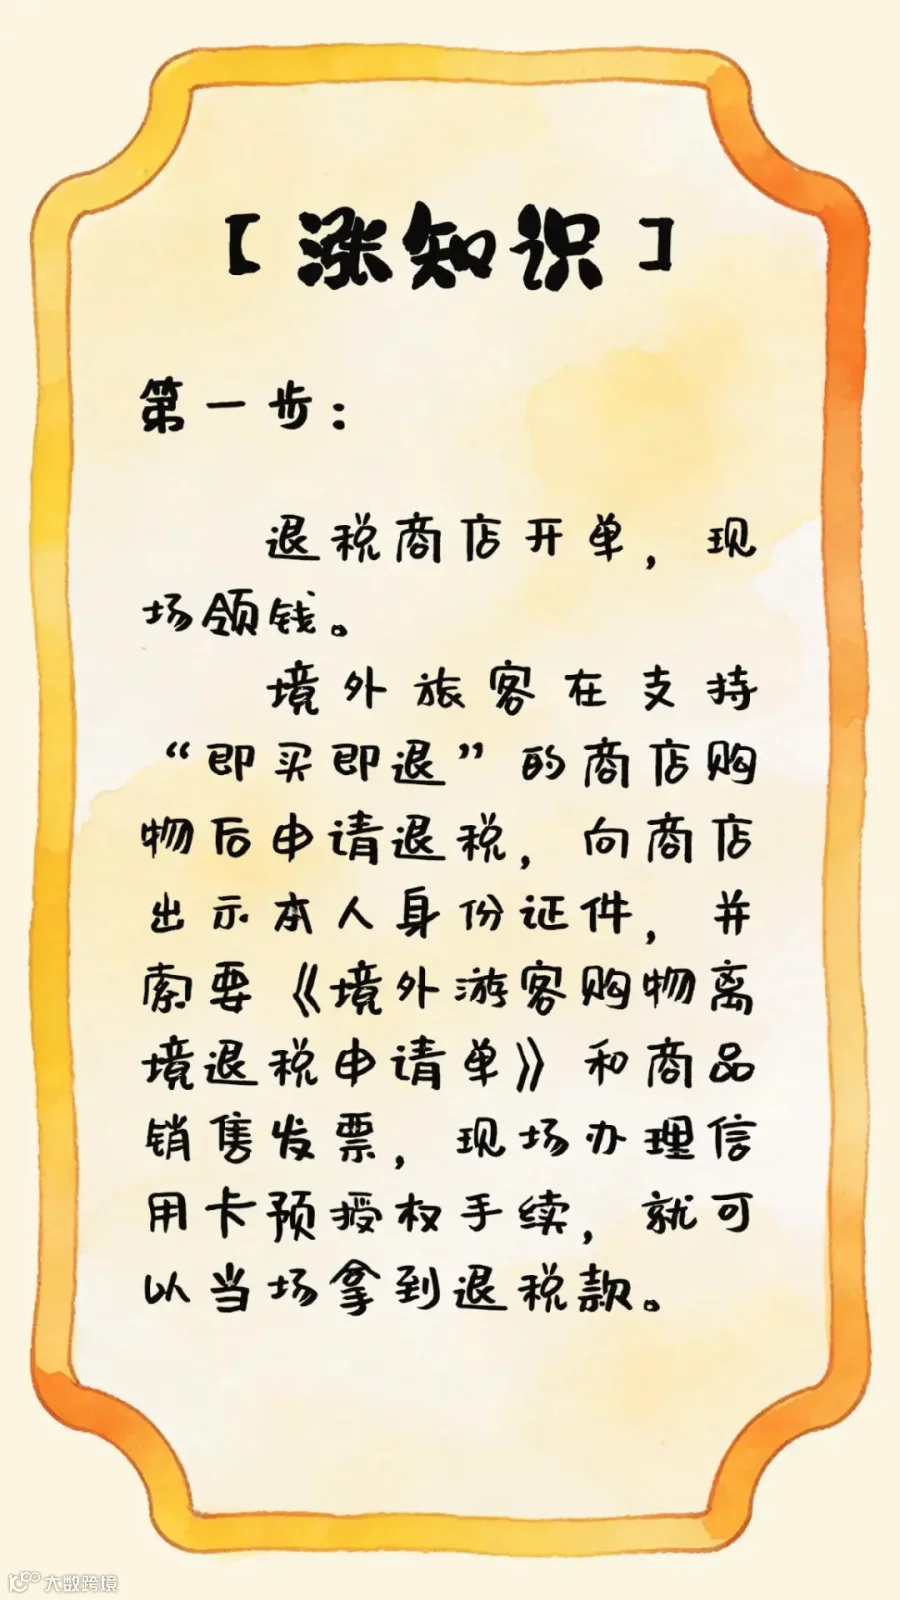 【涨知识】
第一步：
退税商店开单，现
场领钱。
境外旅客在支持
“即买即退”的商店购
物后申请退税，向商店
出示本人身份证件，并
索要《境外游客购物离
境退税申请单》和商品
销售发票，现场办理信
用卡预授权手续，就可
以当场拿到退税款。
大数跨境